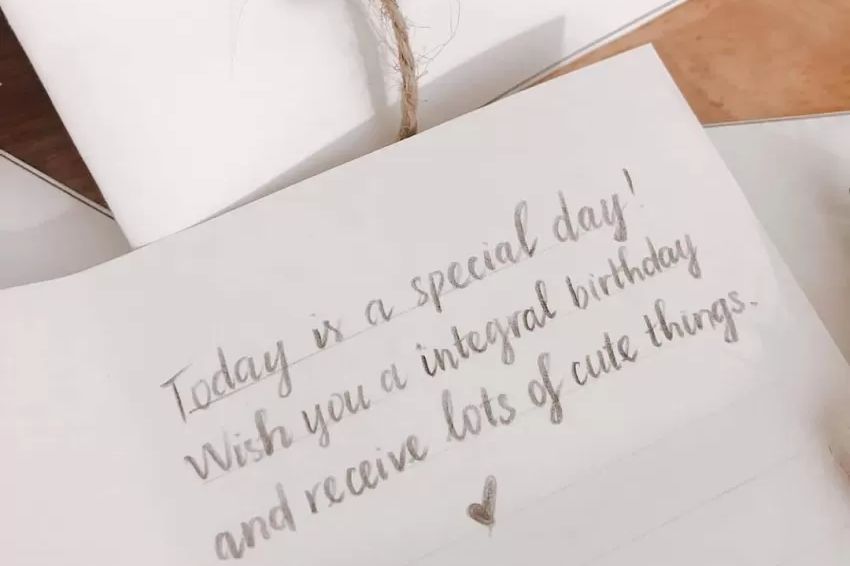 Today is a special day!
Wish you a integral birthday
and receive lots of cute things.